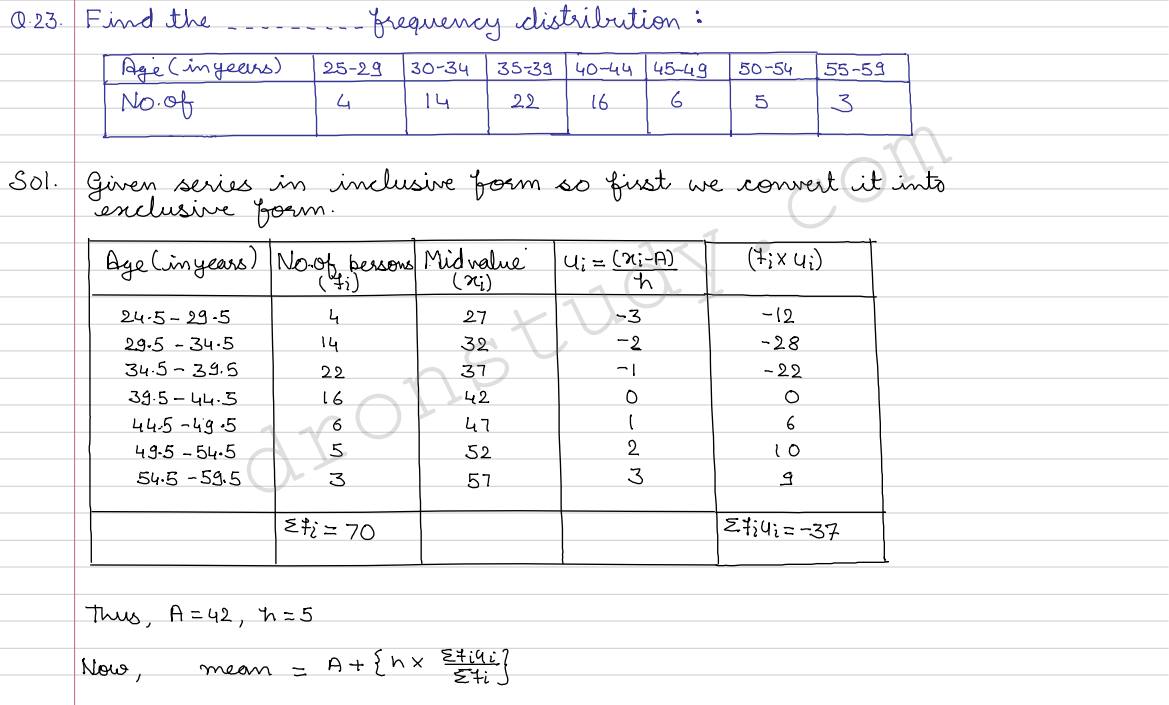 Q.23. Find the --------- frequency distribution :
Age (in years) 25-29 30-34 35-39 40-44 45-49 50-54 55-59
No. of 4 14 22 16 6 5 3
Sol. Given series in inclusive form so first we convert it into
exclusive form.
Age (in years) No. of persons (fi) Mid value (xi) ui = (xi-A)/h (fi x ui)
24.5 - 29.5 4 27 -3 -12
29.5 - 34.5 14 32 -2 -28
34.5 - 39.5 22 37 -1 -22
39.5 - 44.5 16 42 0 0
44.5 - 49.5 6 47 1 6
49.5 - 54.5 5 52 2 10
54.5 - 59.5 3 57 3 9
Σfi = 70 Σfiui = -37
Thus, A = 42, h = 5
Now, mean = A + {h × Σfiui/Σfi}
dronstudy.com